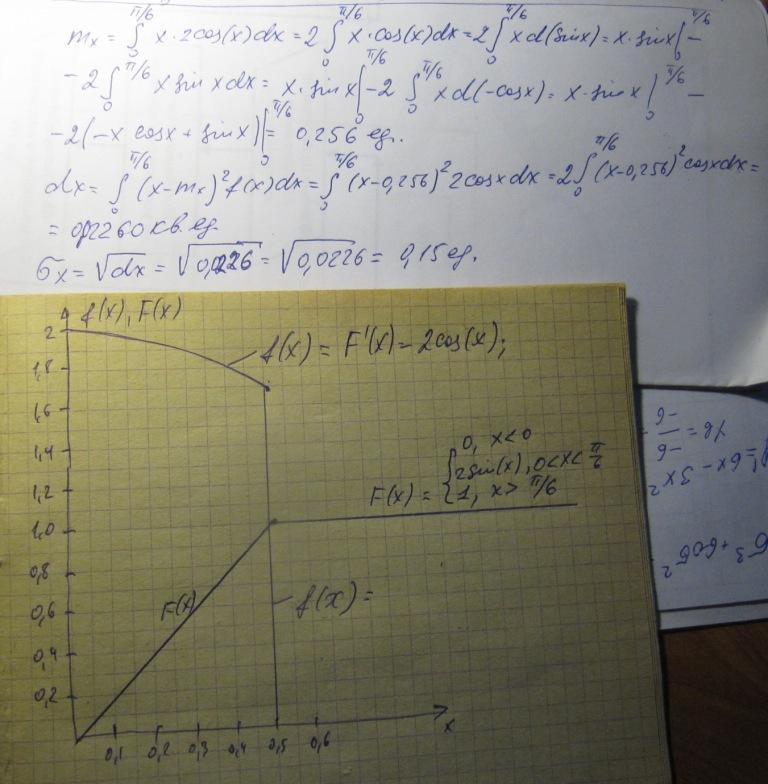 mₓ = ∫₀^π/6 x·2cos(x)dx = 2∫₀^π/6 x·cos(x)dx = 2∫₀^π/6 x d(sinx) = x·sinx|₀^π/6 –
- 2∫₀^π/6 x sinx dx = x·sinx|₀^π/6 - 2∫₀^π/6 x d(-cosx) = x·sinx|₀^π/6 –
-2(-x cosx + sinx)|₀^π/6 = 0,256 ед.
dx = ∫₀^π/6 (x-mₓ)² f(x)dx = ∫₀^π/6 (x-0,256)² 2cosxdx = 2∫₀^π/6 (x-0,256)² cosxdx =
= 0,02260 кв.ед.
σₓ = √dx = √0,0226 = √0,0226 = 0,15 ед.
f(x), F(x)
f(x) = F'(x) = 2cos(x);
F(x) = {0, x<0
2sin(x), 0<x<π/6
1, x>π/6
F(x)
f(x) =
2
1,8
1,6
1,4
1,2
1,0
0,8
0,6
0,4
0,2
0,1 0,2 0,3 0,4 0,5 0,6
x
=6x-3x²
+60б²